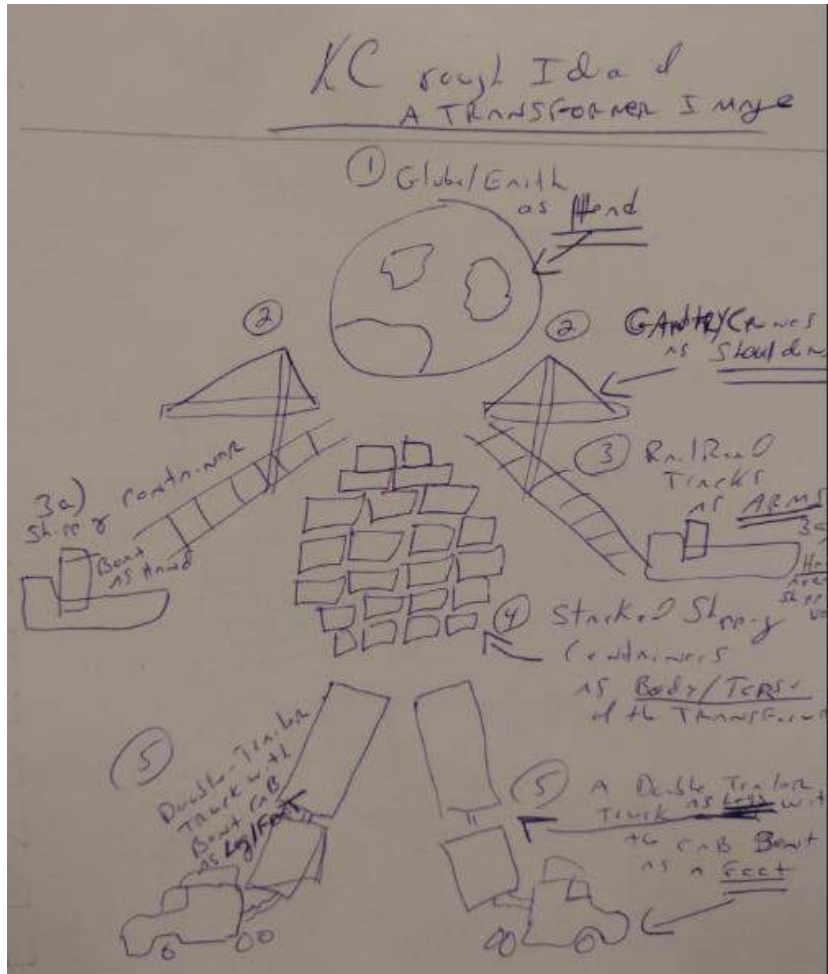 KC rough Idea of
A TRANSFORMER Image
① Globe/Earth
as Head
②
②
GANTRY/Cranes
as Shoulders
③ RailRoad
Tracks
as ARMS
3a)
Shipping container
Boat
as Hand
3a
④ Stacked Shipping
Containers
as Body/Torso
of the TRANSFORMER
⑤
Double-Trailer
Truck with
Bent CAB
as Leg/Foot
⑤ A Double Trailer
Truck as Legs with
the CAB Bent
as a Feet